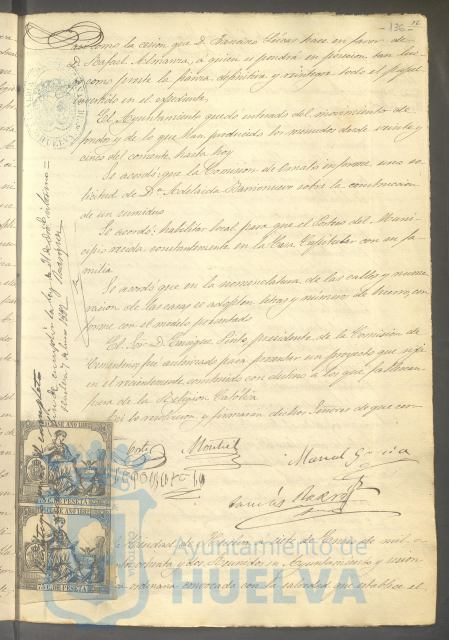 136
así como la cesión que D. Francisco hace en favor de
D. Rafael Almansa, á quien se pondrá en posesión tan luego
como preste la fianza definitiva y reintegre todo el papel
invertido en el espediente.
El Ayuntamiento quedó enterado del movimiento de
fondos y de lo que han producido los menudos desde veinte y
cinco del corriente hasta hoy
Se acordó que la Comision de Ornato informe una so-
licitud de Dª Adelaida Barrionuevo sobre la construccion
de un sumidero
Se acordó habilitar local para que el Portero del Muni-
cipio resida constantemente en la Casa Capitular con su fa-
milia.
Se acordó que en la nomenclatura de las calles y nume-
racion de las casas se adopten letras y número de hierro, con-
forme con el modelo presentado
El Sor. D. Enrique Pinto, presidente de la Comision de
Cementerios, fué autorizado para presentar un proyecto que rija
en el recientemente construido con destino á los que fallezcan
fuera de la Religion Católica
Así lo resolvieron y firmaron dichos Señores de que cer-
Montiel
Manuel García
Tomás
75 C. DE PESETA
75 C. DE PESETA
Ciudad de Huelva á siete de Enero de mil
ochenta y dos. Reunidos en Ayuntamiento y sesion
ordinaria convocada con la que establece el
Ayuntamiento de
HUELVA